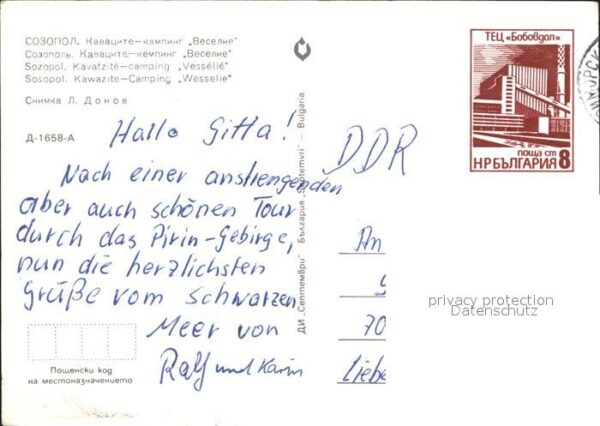 СОЗОПОЛ. Каваците—кампинг „Веселие"
Созополь. Каваците—кемпинг „Веселие"
Sozopol. Kavatzité-camping „Vessélié"
Sosopol. Kawazite-Camping „Wesselie"
Снимка Л. Донов
Д-1658-А
Hallo Gitta!
Nach einer anstrengenden
aber auch schönen Tour
durch das Pirin-Gebirge,
nun die herzlichsten
Grüße vom Schwarzen
Meer von
Ralf und Karin
Пощенски код
на местоназначението
ДИ „Септември" България „Septemvri" — Bulgaria
ТЕЦ «Бобовдол»
поща ст
НРБЪЛГАРИЯ 8
DDR
An
70
Liebe
privacy protection
Datenschutz